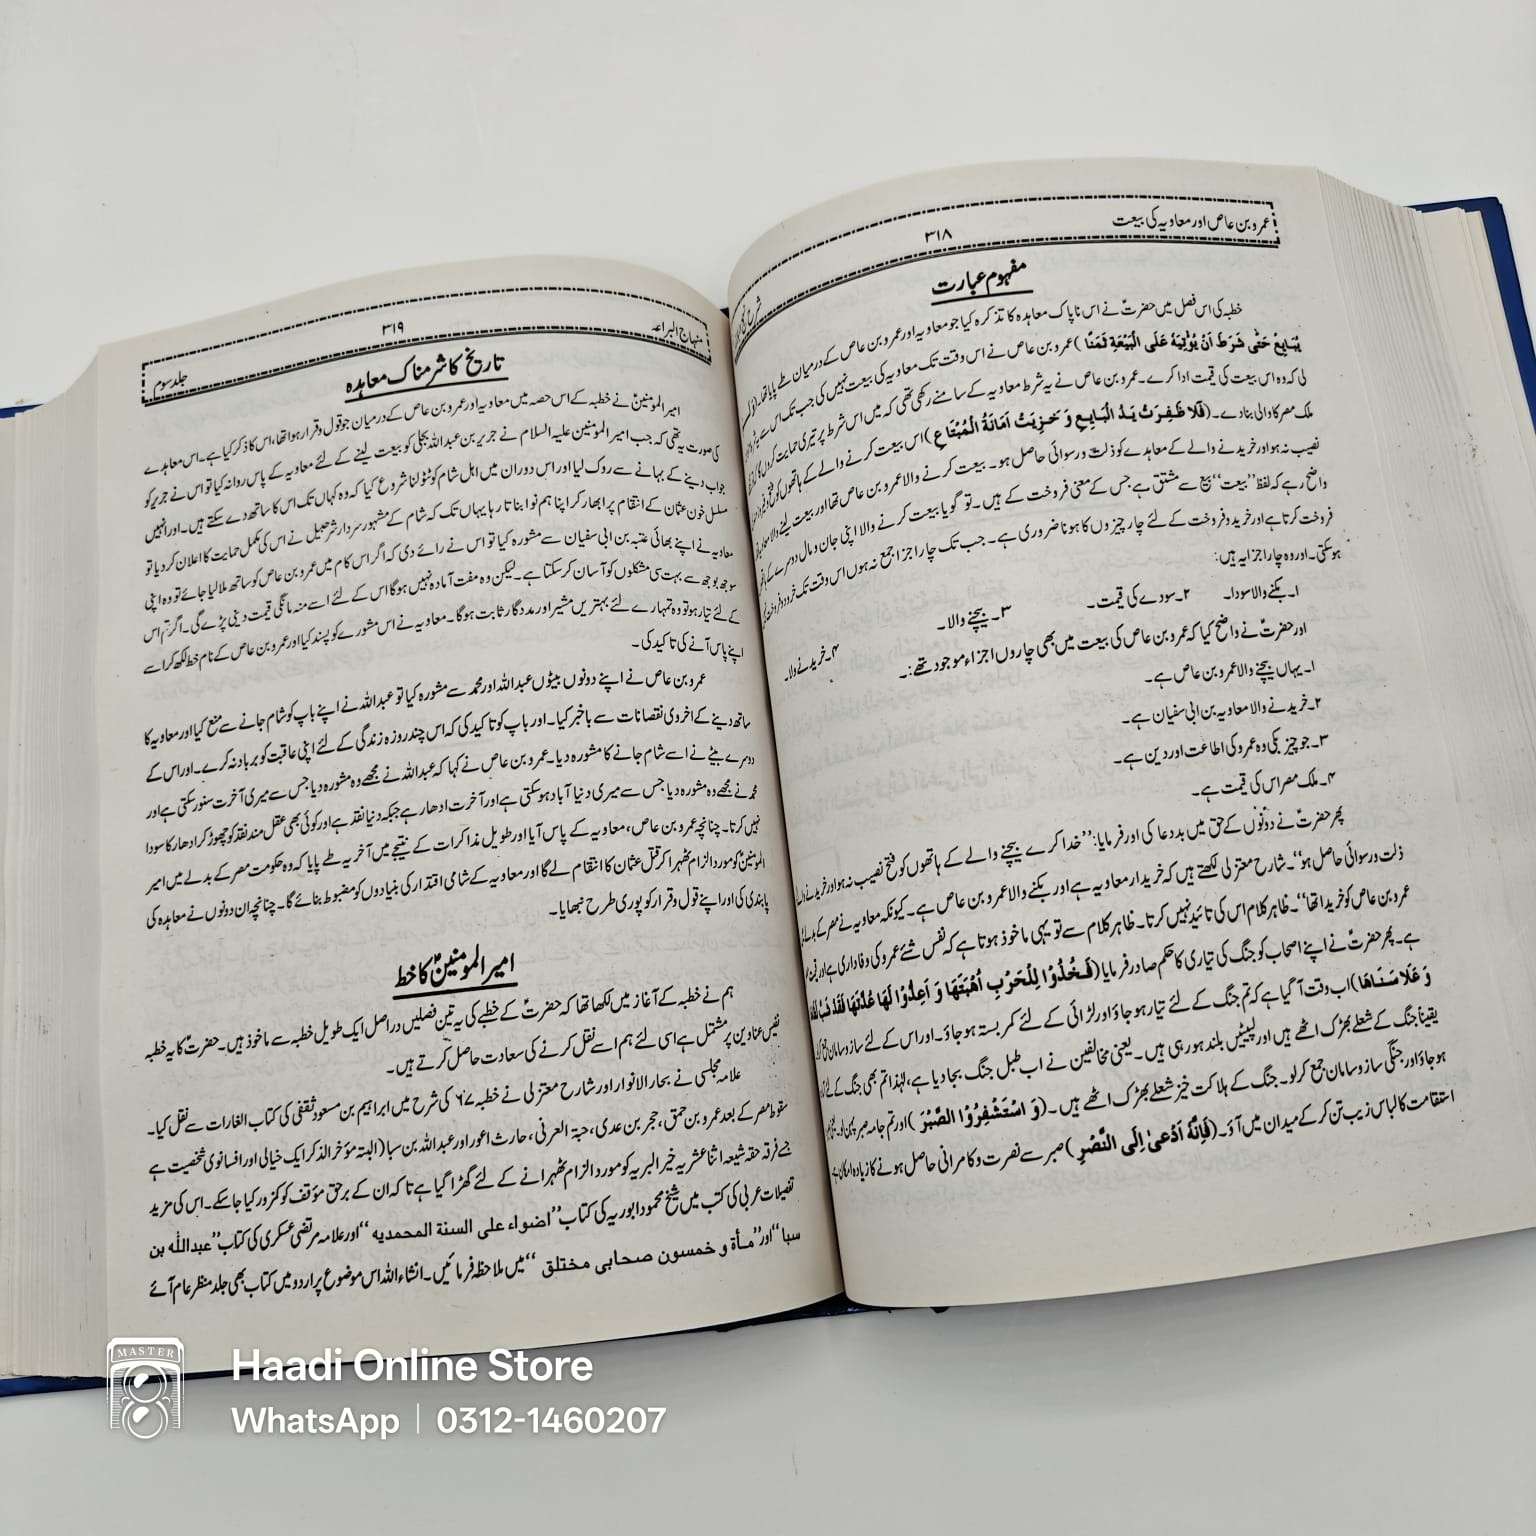 عمرو بن عاص اور معاویہ کی بیعت
۳۱۸
شرح نہج
مفہوم عبارت
خطبہ کی اس فصل میں حضرتؑ نے اس ناپاک معاہدہ کا تذکرہ کیا جو معاویہ اور عمرو بن عاص کے درمیان طے پایا تھا۔
یُبَایِعْ حَتّٰی شَرَطَ اَنْ یُؤْتِیَهٗ عَلَی الْبَیْعَةِ ثَمَنًا) عمرو بن عاص نے اس وقت تک معاویہ کی بیعت نہیں کی جب تک اس سے
لی کہ وہ اس بیعت کی قیمت ادا کرے۔ عمرو بن عاص نے یہ شرط معاویہ کے سامنے رکھی تھی کہ میں اس شرط پر تیری حمایت کروں گا
ملک مصر کا والی بنادے۔ (فَلَا ظَفِرَتْ یَدُ الْبَایِعِ وَ خَزِیَتْ اَمَانَةُ الْمُبْتَاعِ) اس بیعت کرنے والے کے ہاتھوں کو فتح و
نصیب نہ ہو اور خریدنے والے کے معاہدے کو ذلت و رسوائی حاصل ہو۔ بیعت کرنے والا عمرو بن عاص تھا اور بیعت لینے والا
واضح رہے کہ لفظ ’’بیعت‘‘ بیع سے مشتق ہے جس کے معنی فروخت کے ہیں۔ تو گویا بیعت کرنے والا اپنی جان و مال دوسرے کے ہاتھ
فروخت کرتا ہے اور خرید و فروخت کے لئے چار چیزوں کا ہونا ضروری ہے۔ جب تک چار اجزا جمع نہ ہوں اس وقت تک خرید و فروخت
ہو سکتی۔ اور وہ چار اجزا یہ ہیں:
۱۔ بکنے والا سودا۔ ۲۔ سودے کی قیمت۔ ۳۔ بیچنے والا۔ ۴۔ خریدنے والا۔
اور حضرتؑ نے واضح کیا کہ عمرو بن عاص کی بیعت میں بھی چاروں اجزاء موجود تھے:۔
۱۔ یہاں بیچنے والا عمرو بن عاص ہے۔
۲۔ خریدنے والا معاویہ بن ابی سفیان ہے۔
۳۔ جو چیز بکی وہ عمرو کی اطاعت اور دین ہے۔
۴۔ ملک مصر اس کی قیمت ہے۔
پھر حضرتؑ نے دونوں کے حق میں بددعا کی اور فرمایا: ’’خدا کرے بیچنے والے کے ہاتھوں کو فتح نصیب نہ ہو اور خریدنے والے
ذلت و رسوائی حاصل ہو‘‘۔ شارح معتزلی لکھتے ہیں کہ خریدار معاویہ ہے اور بکنے والا عمرو بن عاص ہے۔ کیونکہ معاویہ نے مصر کے بدلے
عمرو بن عاص کو خریدا تھا‘‘۔ ظاہر کلام اس کی تائید نہیں کرتا۔ ظاہر کلام سے تو یہی ماخوذ ہوتا ہے کہ نفس شئے عمرو کی وفاداری ہے اور قیمت
ہے۔ پھر حضرتؑ نے اپنے اصحاب کو جنگ کی تیاری کا حکم صادر فرمایا (فَخُذُوْا لِلْحَرْبِ اُهْبَتَهَا وَ اَعِدُّوْا لَهَا عُدَّتَهَا فَقَدْ شَبَّ
وَ عَلَا سَنَاهَا) اب وقت آ گیا ہے کہ تم جنگ کے لئے تیار ہو جاؤ اور لڑائی کے لئے کمر بستہ ہو جاؤ۔ اور اس کے لئے ساز و سامان
یقیناً جنگ کے شعلے بھڑک اٹھے ہیں اور لپیٹیں بلند ہو رہی ہیں۔ یعنی مخالفین نے اب طبل جنگ بجا دیا ہے، لہٰذا تم بھی جنگ کے لئے
ہو جاؤ اور جنگی ساز و سامان جمع کر لو۔ جنگ کے ہلاکت خیز شعلے بھڑک اٹھے ہیں۔ (وَ اسْتَشْفِرُوْا الصَّبْرَ) اور تم جامہ صبر پہن لو۔
استقامت کا لباس زیب تن کر کے میدان میں آؤ۔ (فَاِنَّهٗ اَدْعٰی اِلَی النَّصْرِ) صبر سے نصرت و کامرانی حاصل ہونے کا زیادہ امکان ہے
منہاج البراعہ
۳۱۹
جلد سوم
تاریخ کا شرمناک معاہدہ
امیر المومنینؑ نے خطبہ کے اس حصہ میں معاویہ اور عمرو بن عاص کے درمیان جو قول و قرار ہوا تھا، اس کا ذکر کیا ہے۔ اس معاہدے
کی صورت یہ تھی کہ جب امیر المومنین علیہ السلام نے جریر بن عبداللہ بجلی کو بیعت لینے کے لئے معاویہ کے پاس روانہ کیا تو اس نے جریر کو
جواب دینے کے بہانے سے روک لیا اور اس دوران میں اہل شام کو ٹٹولنا شروع کیا کہ وہ کہاں تک اس کا ساتھ دے سکتے ہیں۔ اور انہیں
مسلسل خون عثمان کے انتقام پر ابھار کر اپنا ہم نوا بناتا رہا یہاں تک کہ شام کے مشہور سردار شرحبیل نے اس کی مکمل حمایت کا اعلان کر دیا تو
معاویہ نے اپنے بھائی عتبہ بن ابی سفیان سے مشورہ کیا تو اس نے رائے دی کہ اگر اس کام میں عمرو بن عاص کو ساتھ ملا لیا جائے تو وہ اپنی
سوجھ بوجھ سے بہت سی مشکلوں کو آسان کر سکتا ہے۔ لیکن وہ مفت آمادہ نہیں ہوگا اس کے لئے اسے منہ مانگی قیمت دینی پڑے گی۔ اگر تم اس
کے لئے تیار ہو تو وہ تمہارے لئے بہترین مشیر اور مددگار ثابت ہوگا۔ معاویہ نے اس مشورے کو پسند کیا اور عمرو بن عاص کے نام خط لکھ کر اسے
اپنے پاس آنے کی تاکید کی۔
عمرو بن عاص نے اپنے دونوں بیٹوں عبداللہ اور محمد سے مشورہ کیا تو عبداللہ نے اپنے باپ کو شام جانے سے منع کیا اور معاویہ کا
ساتھ دینے کے اخروی نقصانات سے باخبر کیا۔ اور باپ کو تاکید کی کہ اس چند روزہ زندگی کے لئے اپنی عاقبت کو برباد نہ کرے۔ اور اس کے
دوسرے بیٹے نے اسے شام جانے کا مشورہ دیا۔ عمرو بن عاص نے کہا کہ عبداللہ نے مجھے وہ مشورہ دیا جس سے میری آخرت سنور سکتی ہے اور
محمد نے مجھے وہ مشورہ دیا جس سے میری دنیا آباد ہو سکتی ہے اور آخرت ادھار ہے جبکہ دنیا نقد ہے اور کوئی بھی عقل مند نقد کو چھوڑ کر ادھار کا سودا
نہیں کرتا۔ چنانچہ عمرو بن عاص، معاویہ کے پاس آیا اور طویل مذاکرات کے نتیجے میں آخر یہ طے پایا کہ وہ حکومت مصر کے بدلے میں امیر
المومنینؑ کو مورد الزام ٹھہرا کر قتل عثمان کا انتقام لے گا اور معاویہ کے شامی اقتدار کی بنیادوں کو مضبوط بنائے گا۔ چنانچہ ان دونوں نے معاہدہ کی
پابندی کی اور اپنے قول و قرار کو پوری طرح نبھایا۔
امیر المومنینؑ کا خط
ہم نے خطبہ کے آغاز میں لکھا تھا کہ حضرتؑ کے خطبے کی یہ تین فصلیں دراصل ایک طویل خطبہ سے ماخوذ ہیں۔ حضرتؑ کا یہ خطبہ
نفیس عناوین پر مشتمل ہے اسی لئے ہم اسے نقل کرنے کی سعادت حاصل کرتے ہیں۔
علامہ مجلسی نے بحار الانوار اور شارح معتزلی نے خطبہ ۶۷ کی شرح میں ابراہیم بن مسعود ثقفی کی کتاب الغارات سے نقل کیا۔
سقوط مصر کے بعد عمرو بن حمق، حجر بن عدی، حبۃ العرنی، حارث اعور اور عبداللہ بن سبا (البتہ مؤخر الذکر ایک خیالی اور افسانوی شخصیت ہے
جسے فرقہ حقہ شیعہ اثنا عشریہ خیر البریہ کو مورد الزام ٹھہرانے کے لئے گھڑا گیا ہے تاکہ ان کے برحق مؤقف کو کمزور کیا جا سکے۔ اس کی مزید
تفصیلات عربی کی کتب میں شیخ محمود ابوریہ کی کتاب ’’اضواء علی السنة المحمدیه‘‘ اور علامہ مرتضی عسکری کی کتاب ’’عبداللّٰه بن
سبا‘‘ اور ’’مأة و خمسون صحابی مختلق‘‘ میں ملاحظہ فرمائیں۔ انشاء اللہ اس موضوع پر اردو میں کتاب بھی جلد منظر عام آئے
MASTER
Haadi Online Store
WhatsApp | 0312-1460207